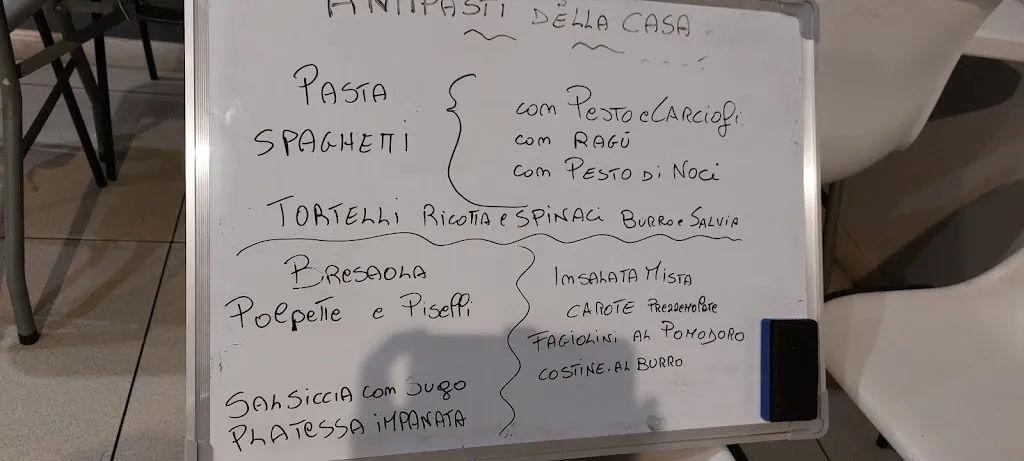 ANTIPASTI DELLA CASA
PASTA
SPAGHETTI
con PESTO e CARCIOFI
con RAGÙ
con PESTO Di NOCi
TORTELLi RICOTTA e SPINACi BURRO e SALVIA
BRESAOLA
POLPETTE e PISELLI
SALSICCIA con SUGO
PLATESSA iMPANATA
INSALATA MISTA
CAROTE PREZZEMOLATE
FAGIOLINI AL POMODORO
COSTINE.AL BURRO